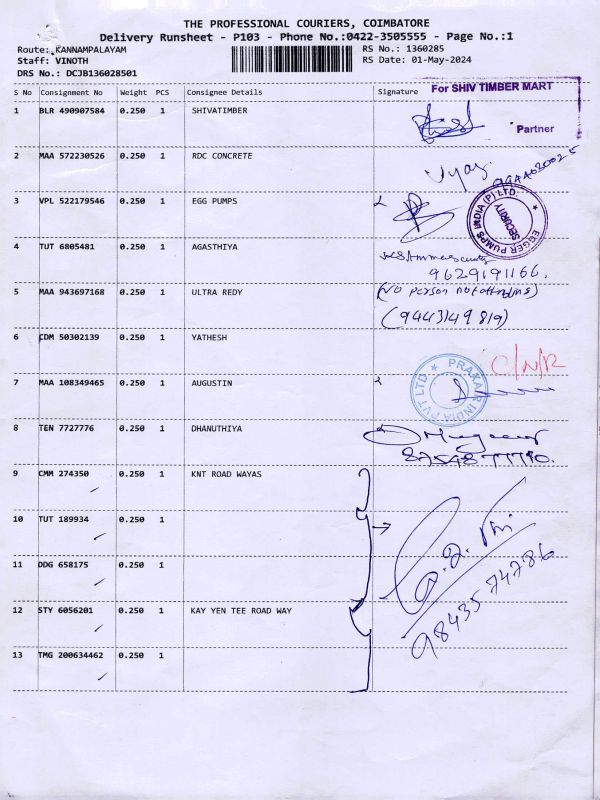 THE PROFESSIONAL COURIERS, COIMBATORE
Delivery Runsheet - P103 - Phone No.:0422-3505555 - Page No.:1
Route: KANNAMPALAYAM
RS No.: 1360285
Staff: VINOTH
RS Date: 01-May-2024
DRS No.: DCJB136028501
S No Consignment No Weight PCS Consignee Details Signature
For SHIV TIMBER MART
1 BLR 490907584 0.250 1 SHIVATIMBER
Partner
2 MAA 572230526 0.250 1 RDC CONCRETE
3 VPL 522179546 0.250 1 EGG PUMPS
EGGER PUMPS INDIA (P) LTD. SECURITY
4 TUT 6805481 0.250 1 AGASTHIYA
9629191166.
5 MAA 943697168 0.250 1 ULTRA REDY
(No person not attending)
(9443149819)
6 CDM 50302139 0.250 1 YATHESH
C/N/R
7 MAA 108349465 0.250 1 AUGUSTIN
PRAXAIR INDIA PVT LTD
8 TEN 7727776 0.250 1 DHANUTHIYA
9 CMM 274350 0.250 1 KNT ROAD WAYAS
10 TUT 189934 0.250 1
11 DDG 658175 0.250 1
9843574786
12 STY 6056201 0.250 1 KAY YEN TEE ROAD WAY
13 TMG 200634462 0.250 1